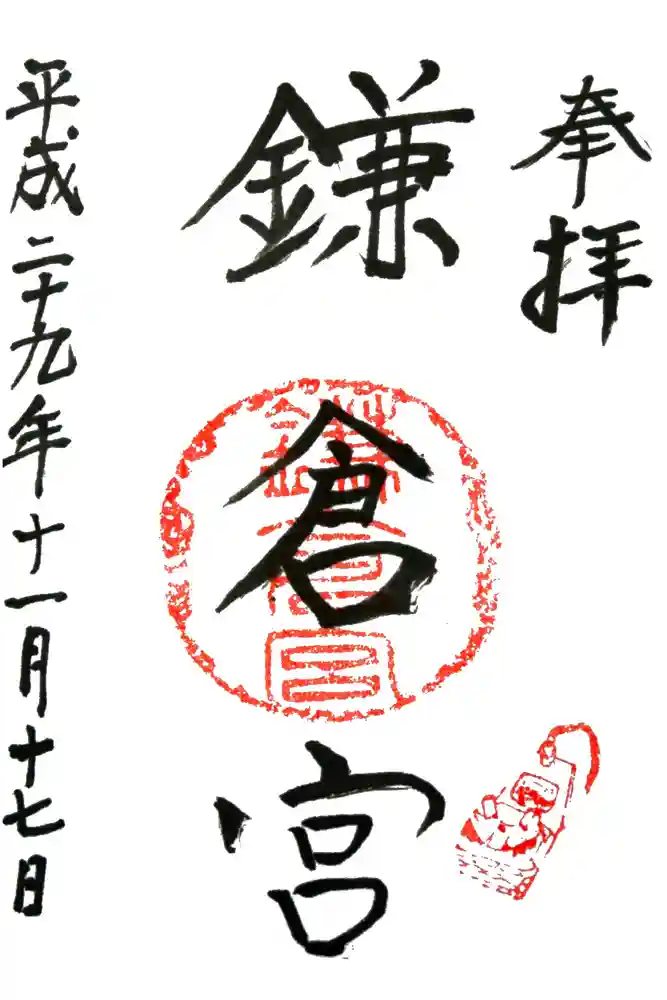 奉拝
鎌倉宮
鎌倉宮
平成二十九年十一月十七日